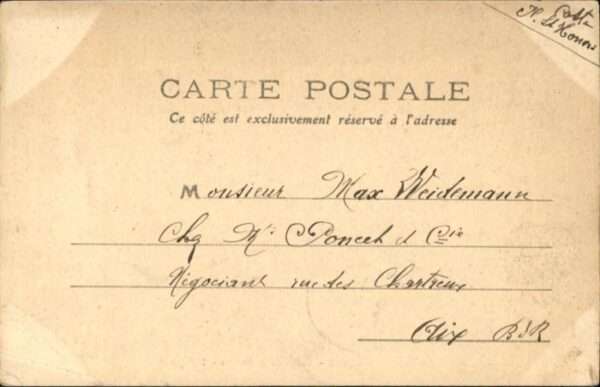 CARTE POSTALE
Ce côté est exclusivement réservé à l'adresse
Monsieur Max Weidemann
Chez Mr Poncet & Cie
Négociant rue des Chartreux
Aix B d R